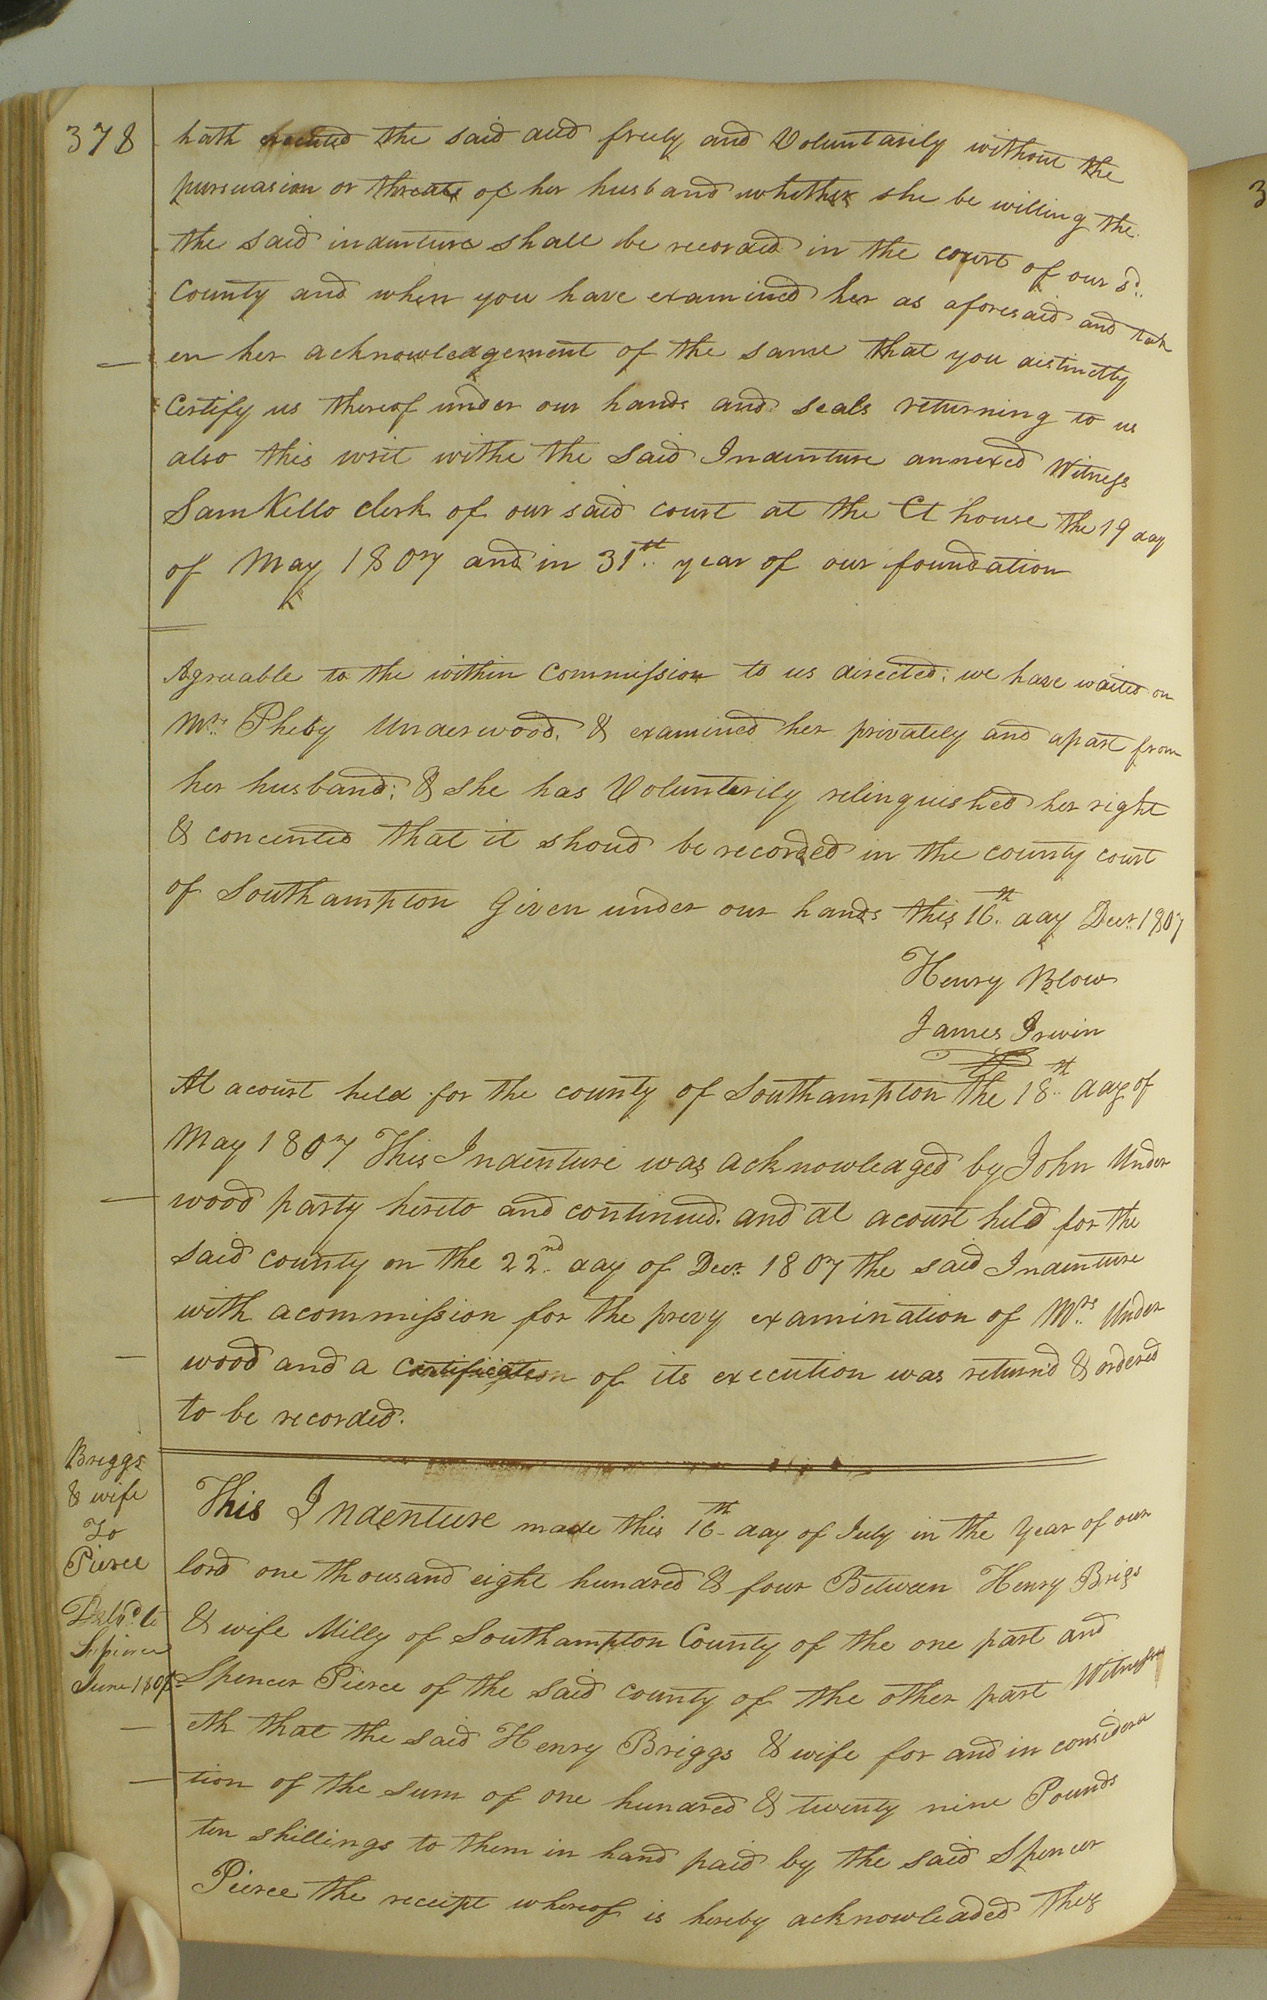 378
hath executed the said and freely and Voluntarily without the
pursuasion or threats of her husband whether she be willing the
the said indenture shall be recorded in the court of our sd..
County and when you have examined her as aforesaid and tak
en her acknowledgement of the same that you distinctly
Certify us thereof under our hands and seals returning to us
also this writ withe the said Indenture annexed Witness
Sam Kello clerk of our said court at the Ct house the 19 day
of May 1807 and in 31th.. year of our foundation
Agreeable to the within Commission to us directed: we have waited on
Mrs. Pheby Underwood, & examined her privately and apart from
her husband: & she has Voluntarily relinquished her right
& concented that it shoud be recorded in the county court
of Southampton Given under our hands this 16th. day Decr. 1807
Henry Blow
James Irwin
At acourt held for the county of Southampton the 18th.. day of
May 1807 This Indenture was acknowledged by John Under
wood party hereto and continued. and at acourt held for the
said county on the 22nd. day of Decr. 1807 the said Indenture
with acommission for the prevy examination of Mrs. Under
wood and a Certification of its execution was returnd & ordered
to be recorded.
Briggs
& wife
To
Pierce
Deld. to
S. pierce
June 180
This Indenture made this 16th. day of July in the Year of our
lord one thousand eight hundred & four Between Henry Brigs
& wife Milly of Southampton County of the one part and
Spencer Pierce of the said county of the other part Witness
eth that the said Henry Briggs & wife for and in considera
tion of the sum of one hundred & twenty nine Pounds
ten shillings to them in hand paid by the said Spencer
Pierce the receipt whereof is hereby acknowleaded they